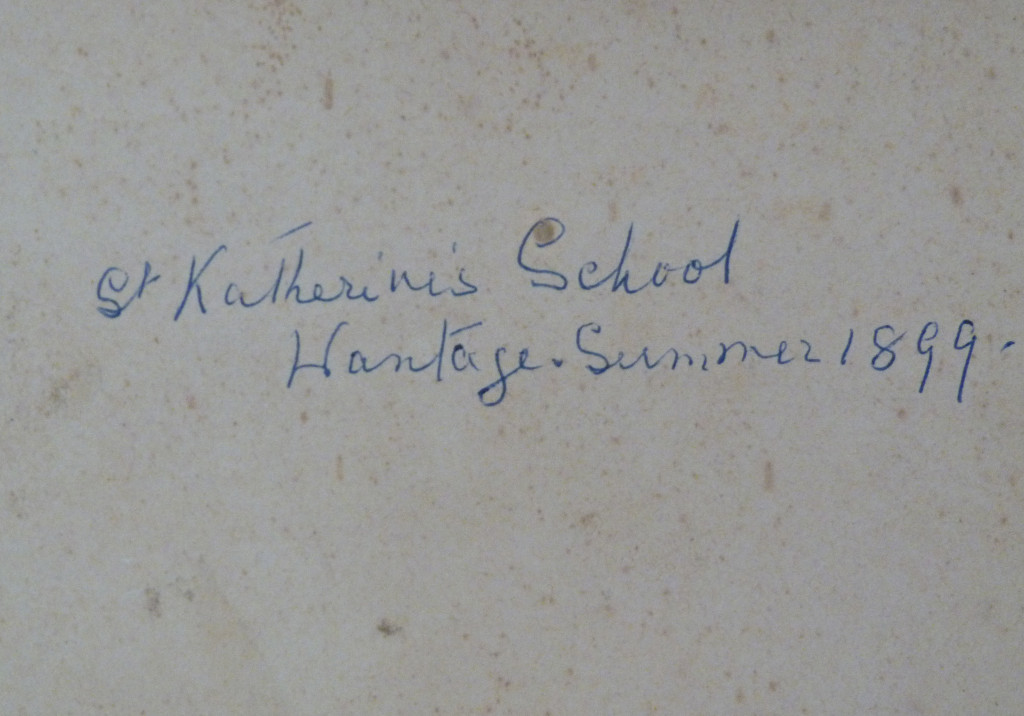 St Katherine's School
Wantage. Summer 1899.